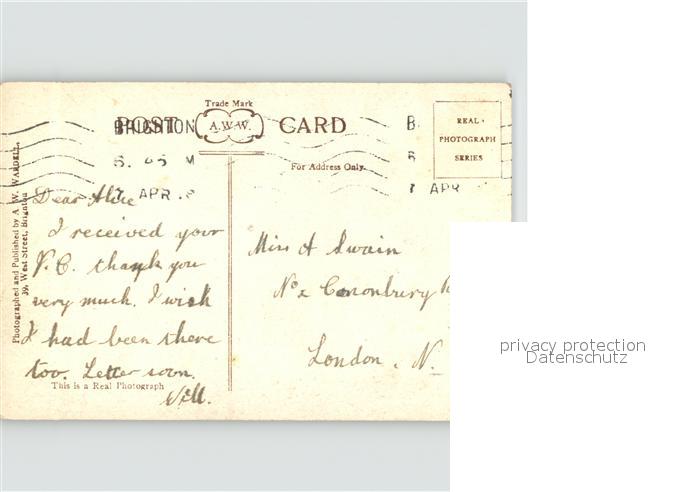 Trade Mark
POST A.W.W. CARD
BRIGHTON
APR
APR
REAL
PHOTOGRAPH
SERIES
For Address Only.
Photographed and Published by A. W. WARDELL,
39, West Street, Brighton
Dear Alice
I received your
P.C. thank you
very much. I wish
I had been there
too. Letter soon.
This is a Real Photograph
Miss A Swain
No 2 Canonbury
London. N.
privacy protection
Datenschutz